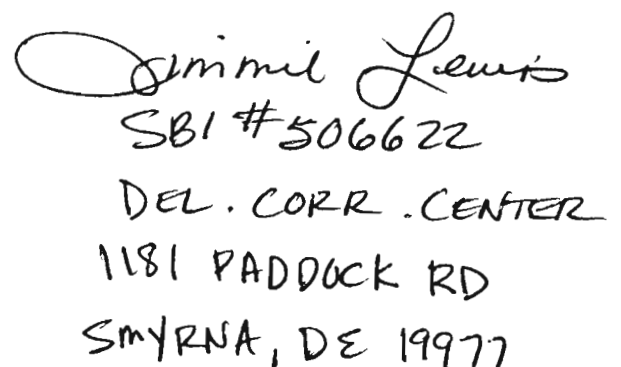 Jimmie Lewis
SBI #506622
DEL. CORR. CENTER
1181 PADDOCK RD
SMYRNA, DE 19977